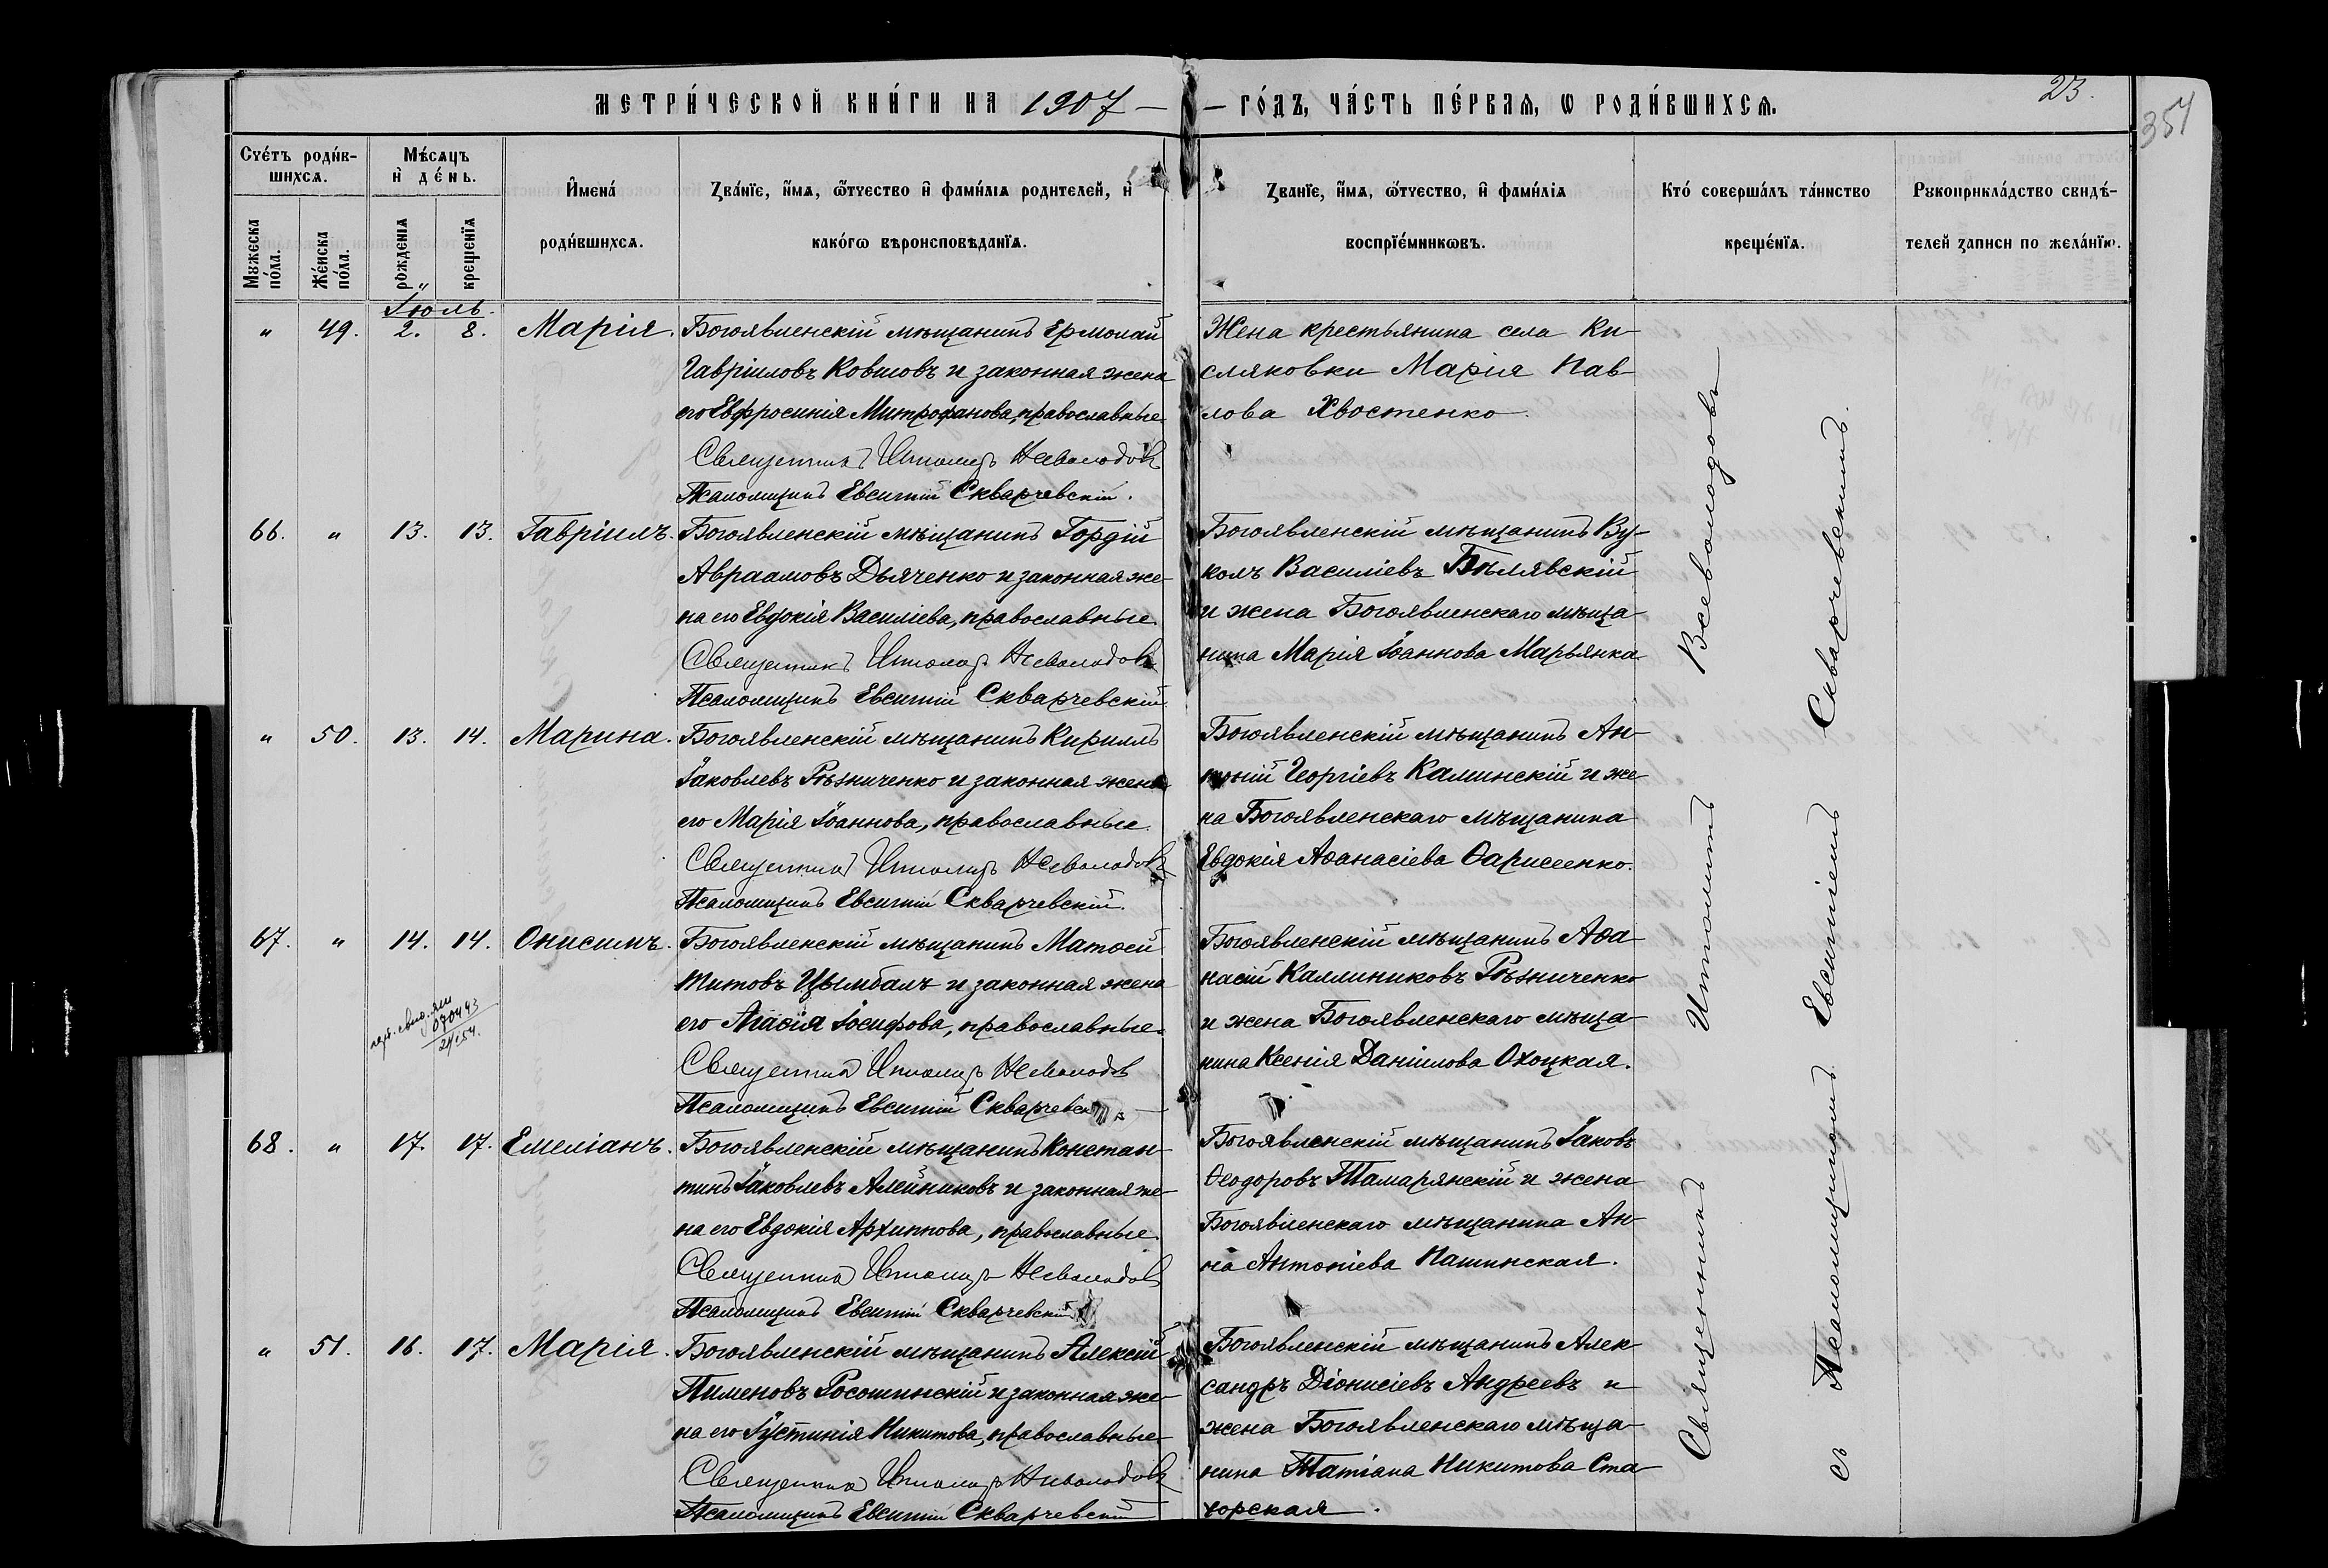 МЕТРИ́ЧЕСКОЙ КНИ́ГИ НА 1907 — — ГО́ДЪ, ЧА́СТЬ ПЕ́РВАЯ, Ѡ РОДИ́ВШИХСѦ.
23.
354
Счетъ роди́вшихсѧ.
Мѣ́сѧцъ и де́нь.
Имена́ роди́вшихсѧ.
Зва́нїе, и́мѧ, ѻ҆́тчество и҆ фами́лїѧ родителей, и҆ како́гѡ вѣроисповѣ́данїѧ.
Зва́нїе, и́мѧ, ѻ҆́тчество, и҆ фами́лїѧ воспрїе́мникѡвъ.
Кто́ соверша́лъ та́инство креще́нїѧ.
Рꙋкоприкла́дство свидѣ́телей записи по жела́нїю.
Мꙋжеска по́ла.
Же́нска по́ла.
рожденїѧ
крещенїѧ
Іюль.
" 49. 2. 8. Марія.
Богоявленскій мѣщанинъ Ермолай
Гавріиловъ Ковшовъ и законная жена
его Евфросинія Митрофанова, православные
Священникъ Ипполитъ Всеволодовъ
Псаломщикъ Евсигній Скварчевскій.
Жена крестьянина села Ки-
сляковки Марія Пав-
лова Хвостенко.
66. " 13. 13. Гавріилъ.
Богоявленскій мѣщанинъ Гордій
Авраамовъ Дьяченко и законная же-
на его Евдокія Василіева, православные.
Священникъ Ипполитъ Всеволодовъ
Псаломщикъ Евсигній Скварчевскій.
Богоявленскій мѣщанинъ Ву-
колъ Василіевъ Бѣлявскій
и жена Богоявленскаго мѣща-
нина Марія Іоаннова Марьянка
" 50. 13. 14. Марина.
Богоявленскій мѣщанинъ Кириллъ
Іаковлевъ Рѣзниченко и законная жена
его Марія Іоаннова, православные.
Священникъ Ипполитъ Всеволодовъ
Псаломщикъ Евсигній Скварчевскій.
Богоявленскій мѣщанинъ Ан-
тоній Георгіевъ Калинскій и же-
на Богоявленскаго мѣщанина
Евдокія Аѳанасіева Ѳарисеенко.
67. " 14. 14. Онисимъ.
Богоявленскій мѣщанинъ Матѳей
Титовъ Цымбалъ и законная жена
его Агаѳія Іосифова, православные.
Священникъ Ипполитъ Всеволодовъ
Псаломщикъ Евсигній Скварчевскій
Богоявленскій мѣщанинъ Аѳа-
насій Каллиниковъ Рѣзниченко
и жена Богоявленскаго мѣща-
нина Ксенія Даніилова Охоцкая.
68. " 17. 17. Емеліанъ.
Богоявленскій мѣщанинъ Констан-
тинъ Іаковлевъ Алейниковъ и законная же-
на его Евдокія Архиппова, православные.
Священникъ Ипполитъ Всеволодовъ
Псаломщикъ Евсигній Скварчевскій
Богоявленскій мѣщанинъ Іаковъ
Ѳеодоровъ Тамарянскій и жена
Богоявленскаго мѣщанина Ан-
на Антоніева Пашинская.
" 51. 16. 17. Марія.
Богоявленскій мѣщанинъ Алексій
Пименовъ Росошинскій и законная же-
на его Іустинія Никитова, православные
Священникъ Ипполитъ Всеволодовъ
Псаломщикъ Евсигній Скварчевскій
Богоявленскій мѣщанинъ Алек-
сандръ Діонисіевъ Андреевъ и
жена Богоявленскаго мѣща-
нина Татіана Никитова Ста-
горская.
Священникъ Ипполитъ Всеволодовъ
съ Псаломщикомъ Евсигніемъ Скварчевскимъ.